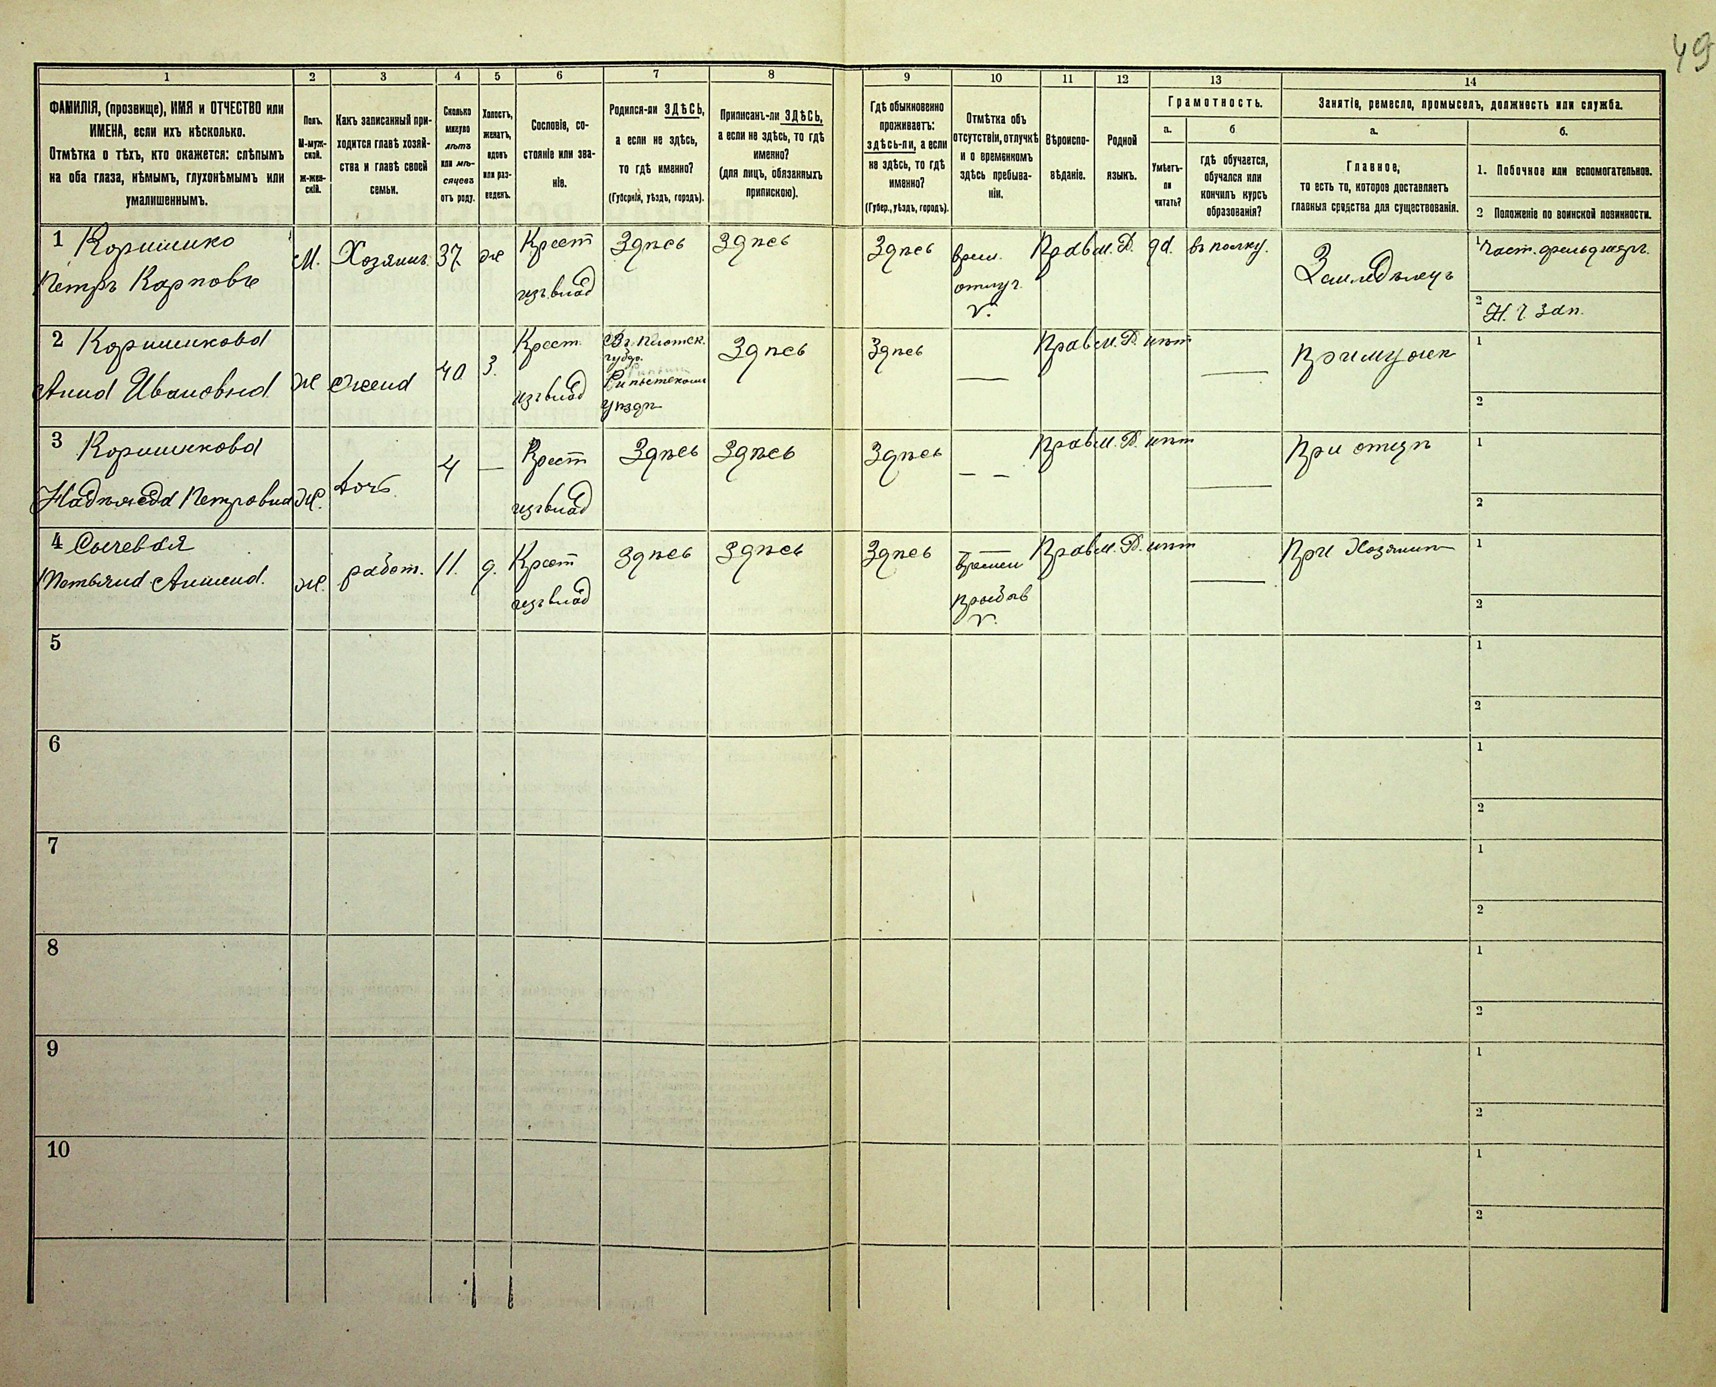 49
1 2 3 4 5 6 7 8 9 10 11 12 13 14
ФАМИЛІЯ, (прозвище), ИМЯ и ОТЧЕСТВО или
ИМЕНА, если ихъ нѣсколько.
Отмѣтка о тѣхъ, кто окажется: слѣпымъ
на оба глаза, нѣмымъ, глухонѣмымъ или
умалишеннымъ.
Полъ.
М-муж-
ской.
ж-жен-
скій.
Какъ записанный при-
ходится главѣ хозяй-
ства и главѣ своей
семьи.
Сколько
минуло
лѣтъ
или мѣ-
сяцевъ
отъ роду.
Холостъ,
женатъ,
вдовъ
или раз-
веденъ.
Сословіе, со-
стояніе или зва-
ніе.
Родился-ли ЗДѢСЬ,
а если не здѣсь,
то гдѣ именно?
(Губернія, уѣздъ, городъ).
Приписанъ-ли ЗДѢСЬ,
а если не здѣсь, то гдѣ
именно?
(для лицъ, обязанныхъ
припискою).
Гдѣ обыкновенно
проживаетъ:
здѣсь-ли, а если
не здѣсь, то гдѣ
именно?
(Губер., уѣздъ, городъ).
Отмѣтка объ
отсутствіи, отлучкѣ
и о временномъ
здѣсь пребыва-
ніи.
Вѣроиспо-
вѣданіе.
Родной
языкъ.
Грамотность.
а.
Умѣетъ-
ли
читать?
б
гдѣ обучается,
обучался или
кончилъ курсъ
образованія?
Занятіе, ремесло, промыселъ, должность или служба.
а.
Главное,
то есть то, которое доставляетъ
главныя средства для существованія.
б.
1. Побочное или вспомогательное.
2 Положеніе по воинской повинности.
1 Коришико
Петръ Карповъ
М. Хозяинъ 37 ж
Крест
изъ влад
Здѣсь Здѣсь Здѣсь
врем.
отлуч.
Прав м. Д. да въ полку.
Земледѣлецъ
1 Част. фельдшеръ.
2 Н. Ч. Зап.
2 Коришикова
Анна Ивановна
ж жена 40 З.
Крест.
изъ влад
уѣздѣ
Здѣсь Здѣсь — Прав м. Д. нѣт — При мужѣ
1
2
3 Коришикова
Надѣжда Петровна
ж. дочь 4 —
Крест
изъ влад
Здѣсь Здѣсь Здѣсь — — Прав м. Д. нѣт — При отцѣ
1
2
4 Сычевая
Татьяна
ж. работ. 11. д.
Крест
изъ влад
Здѣсь Здѣсь Здѣсь —
Времен
прибыв
Прав м. Д. нѣт — При Хозяинѣ
1
2
5
1
2
6
1
2
7
1
2
8
1
2
9
1
2
10
1
2